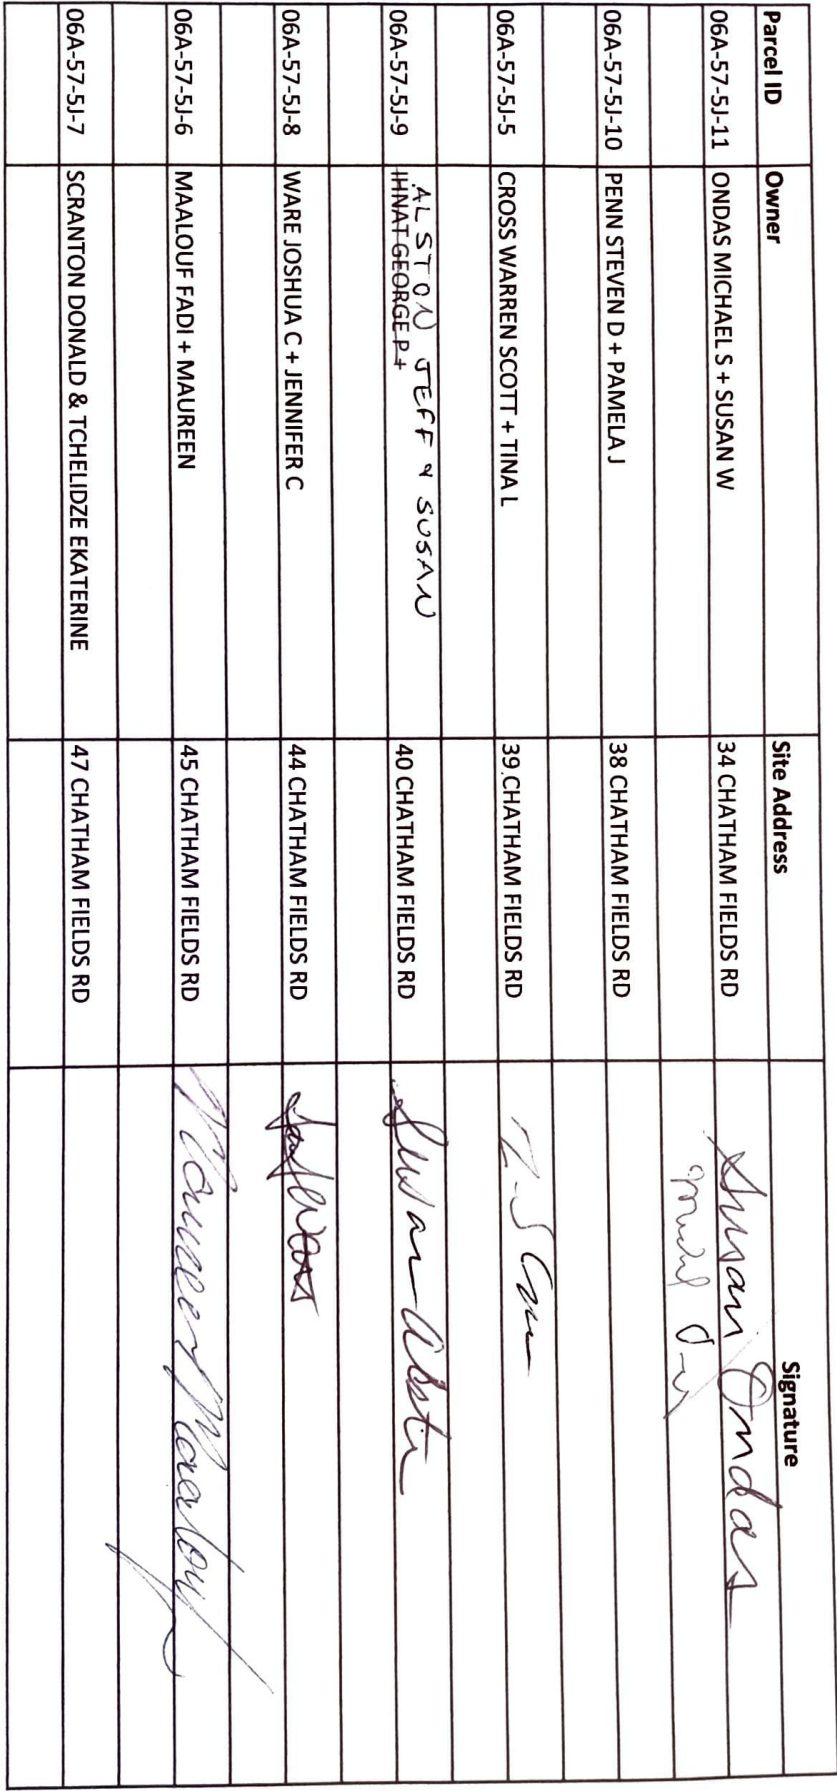 Parcel ID Owner Site Address Signature
06A-57-5J-11 ONDAS MICHAEL S + SUSAN W 34 CHATHAM FIELDS RD Susan Ondas
06A-57-5J-10 PENN STEVEN D + PAMELA J 38 CHATHAM FIELDS RD
06A-57-5J-5 CROSS WARREN SCOTT + TINA L 39 CHATHAM FIELDS RD
ALSTON JEFF & SUSAN
06A-57-5J-9 IHNAT GEORGE P + 40 CHATHAM FIELDS RD Susan Alston
06A-57-5J-8 WARE JOSHUA C + JENNIFER C 44 CHATHAM FIELDS RD
06A-57-5J-6 MAALOUF FADI + MAUREEN 45 CHATHAM FIELDS RD Maureen Maalouf
06A-57-5J-7 SCRANTON DONALD & TCHELIDZE EKATERINE 47 CHATHAM FIELDS RD